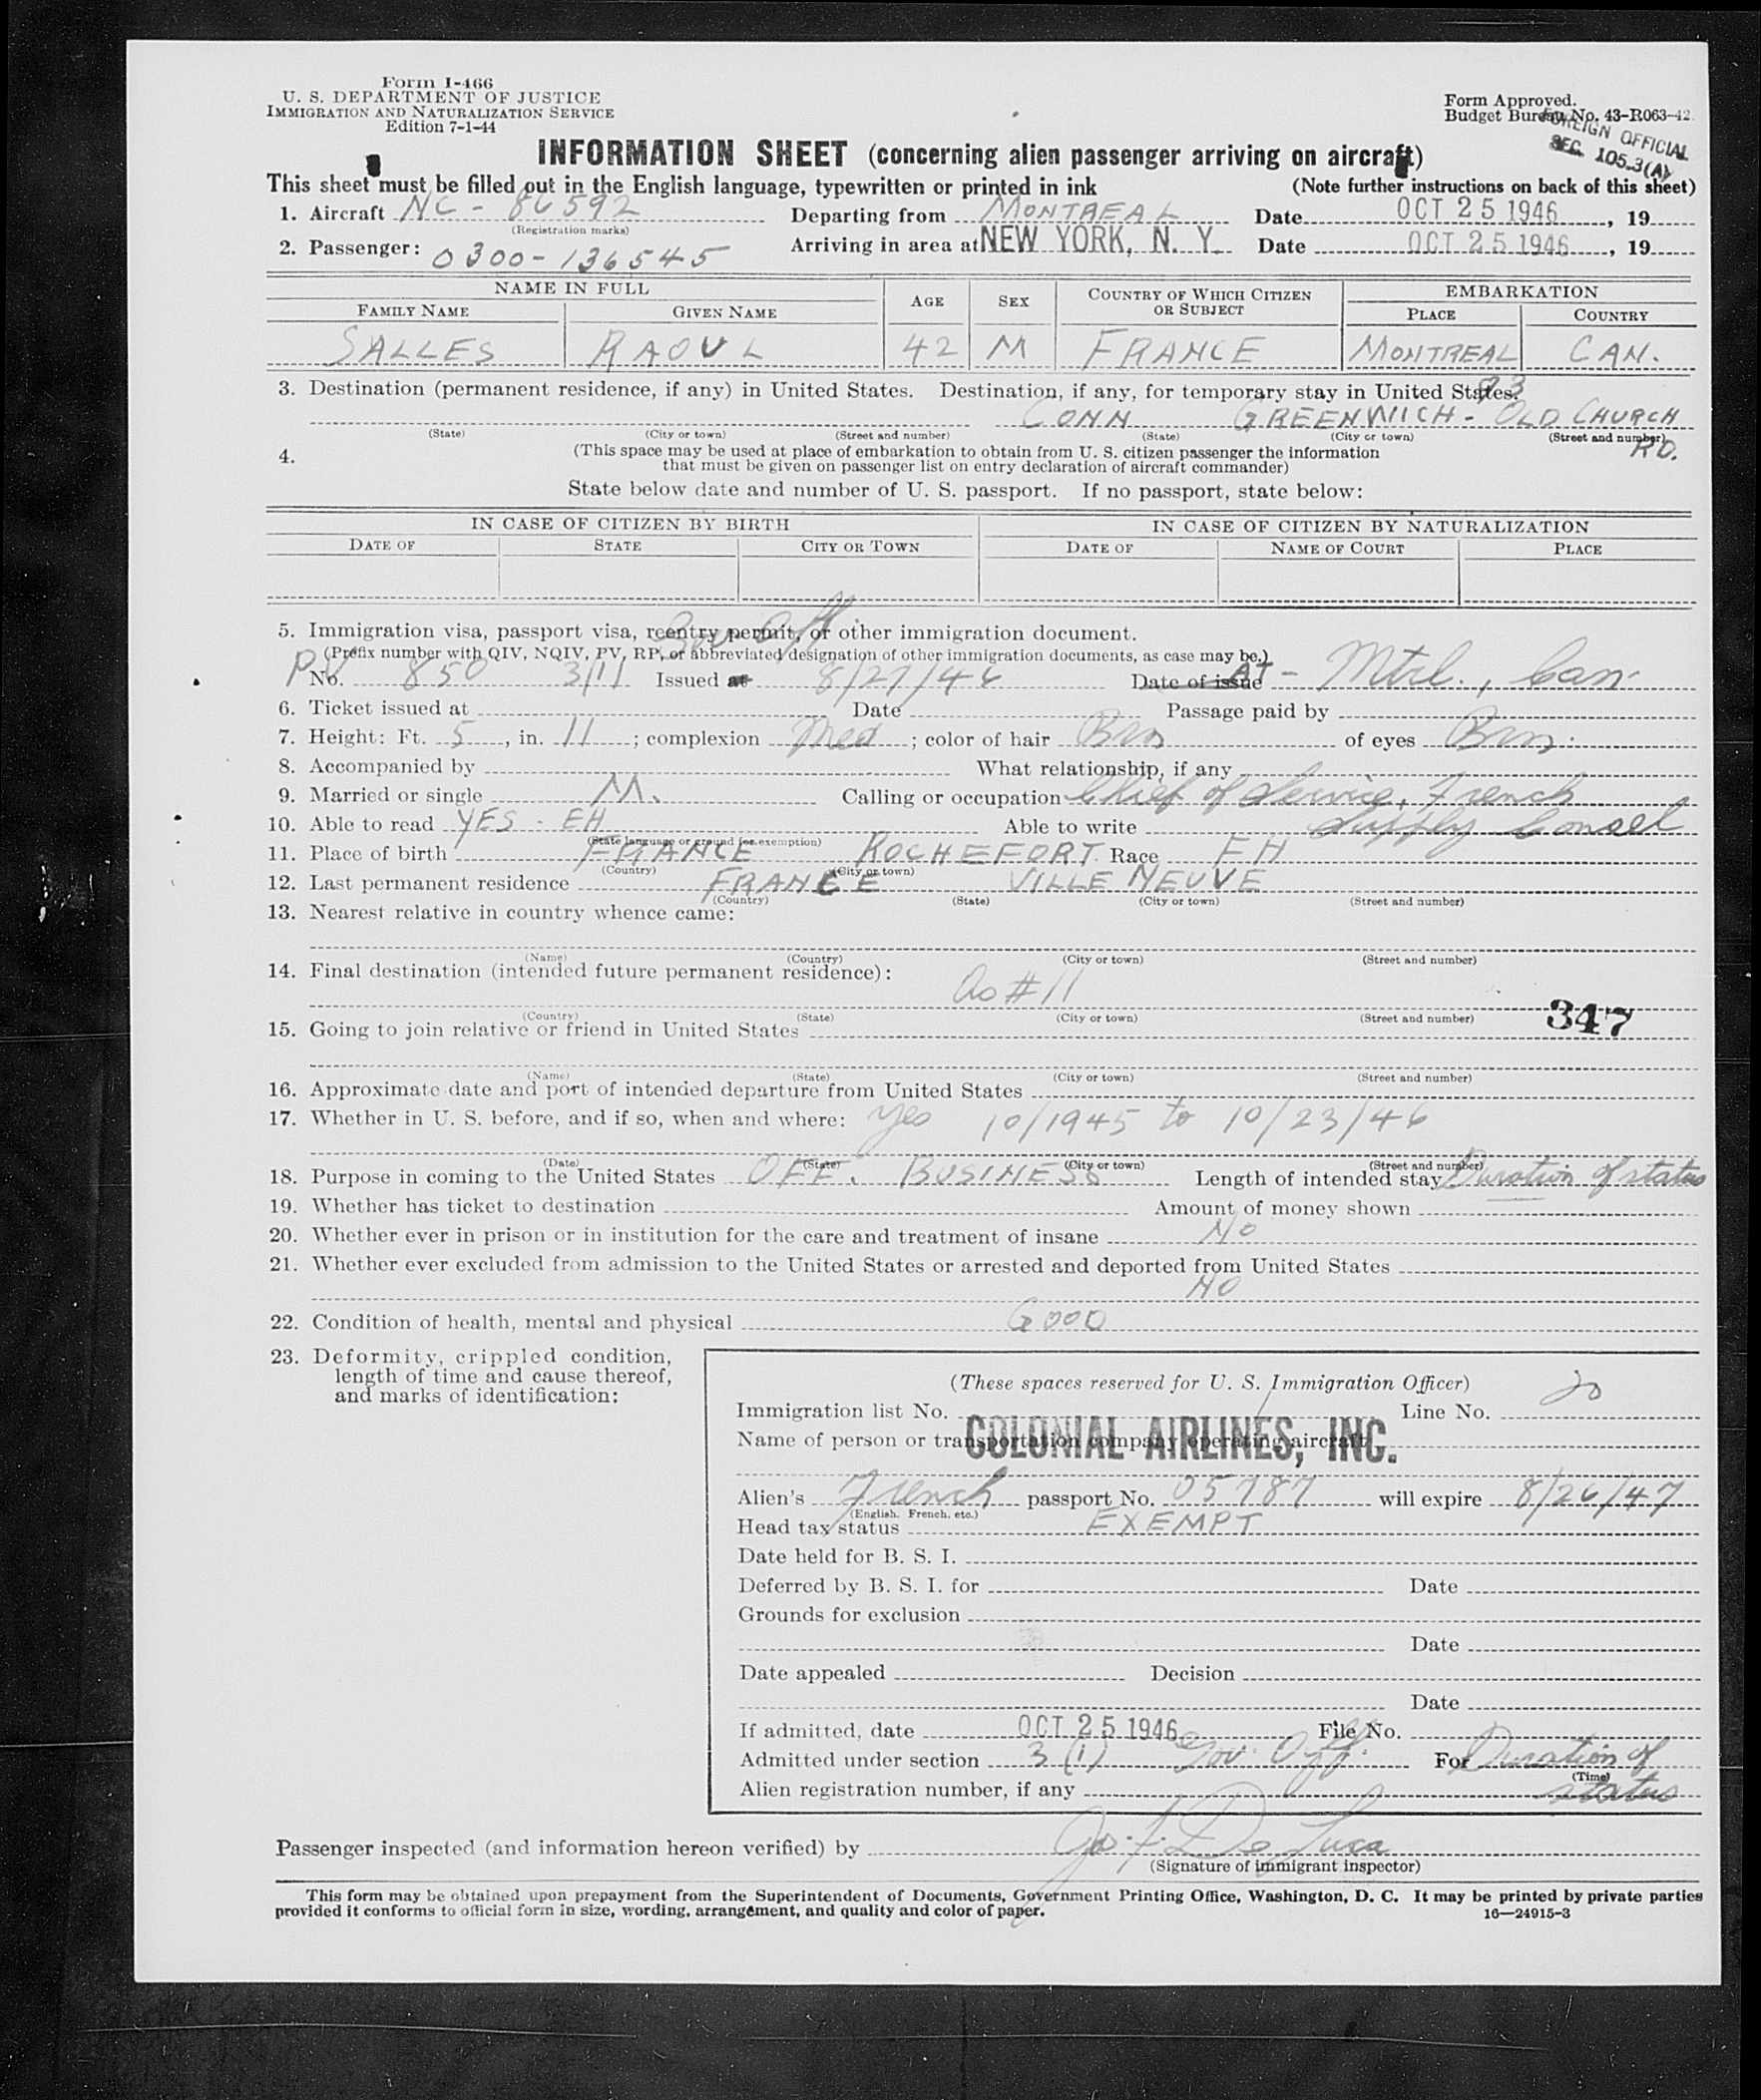 Form I-466
U. S. DEPARTMENT OF JUSTICE
IMMIGRATION AND NATURALIZATION SERVICE
Edition 7-1-44
Form Approved.
Budget Bureau No. 43-R063-42.
FOREIGN OFFICIAL
SEC. 105.3(A)
INFORMATION SHEET (concerning alien passenger arriving on aircraft)
This sheet must be filled out in the English language, typewritten or printed in ink (Note further instructions on back of this sheet)
1. Aircraft NC - 86592 Departing from MONTREAL Date OCT 25 1946, 19
(Registration marks)
2. Passenger: 0300-136545 Arriving in area at NEW YORK, N. Y. Date OCT 25 1946, 19
NAME IN FULL AGE SEX COUNTRY OF WHICH CITIZEN OR SUBJECT EMBARKATION
FAMILY NAME GIVEN NAME PLACE COUNTRY
SALLES RAOUL 42 M FRANCE MONTREAL CAN.
3. Destination (permanent residence, if any) in United States. Destination, if any, for temporary stay in United States?
CONN GREENWIICH - OLD CHURCH
(State) (City or town) (Street and number) (State) (City or town) (Street and number)
RD.
4. (This space may be used at place of embarkation to obtain from U. S. citizen passenger the information
that must be given on passenger list on entry declaration of aircraft commander)
State below date and number of U. S. passport. If no passport, state below:
IN CASE OF CITIZEN BY BIRTH IN CASE OF CITIZEN BY NATURALIZATION
DATE OF STATE CITY OR TOWN DATE OF NAME OF COURT PLACE
Gov Off.
5. Immigration visa, passport visa, reentry permit, or other immigration document.
(Prefix number with QIV, NQIV, PV, RP, or abbreviated designation of other immigration documents, as case may be.)
PV No. 850 3/11 Issued at 8/27/46 Date of issue AT - Mtrl., Can.
6. Ticket issued at Date Passage paid by
7. Height: Ft. 5, in. 11; complexion Med; color of hair Brn of eyes Brn.
8. Accompanied by What relationship, if any
9. Married or single M. Calling or occupation Chief of Service, French
10. Able to read YES - EH Able to write Supply Consel
(State language or ground for exemption)
11. Place of birth FRANCE ROCHEFORT Race FH
(Country) (City or town)
12. Last permanent residence FRANCE VILLE NEUVE
(Country) (State) (City or town) (Street and number)
13. Nearest relative in country whence came:
(Name) (Country) (City or town) (Street and number)
14. Final destination (intended future permanent residence):
As #11
(Country) (State) (City or town) (Street and number)
347
15. Going to join relative or friend in United States
(Name) (State) (City or town) (Street and number)
16. Approximate date and port of intended departure from United States
17. Whether in U. S. before, and if so, when and where: Yes 10/1945 to 10/23/46
(Date) (State) (City or town) (Street and number)
18. Purpose in coming to the United States OFF. BUSINESS Length of intended stay Duration of status
19. Whether has ticket to destination Amount of money shown
20. Whether ever in prison or in institution for the care and treatment of insane NO
21. Whether ever excluded from admission to the United States or arrested and deported from United States
NO
22. Condition of health, mental and physical GOOD
23. Deformity, crippled condition,
length of time and cause thereof,
and marks of identification:
(These spaces reserved for U. S. Immigration Officer)
Immigration list No. 1 Line No. 20
Name of person or transportation company operating aircraft
COLONIAL AIRLINES, INC.
Alien's French passport No. 05787 will expire 8/26/47
(English, French, etc.)
Head tax status EXEMPT
Date held for B. S. I.
Deferred by B. S. I. for Date
Grounds for exclusion
Date
Date appealed Decision
Date
If admitted, date OCT 25 1946 File No.
Admitted under section 3 (1) Gov. Off. For Duration of
(Time)
Alien registration number, if any status
Passenger inspected (and information hereon verified) by Jos. F. De Luca
(Signature of immigrant inspector)
This form may be obtained upon prepayment from the Superintendent of Documents, Government Printing Office, Washington, D. C. It may be printed by private parties
provided it conforms to official form in size, wording, arrangement, and quality and color of paper. 16—24915-3